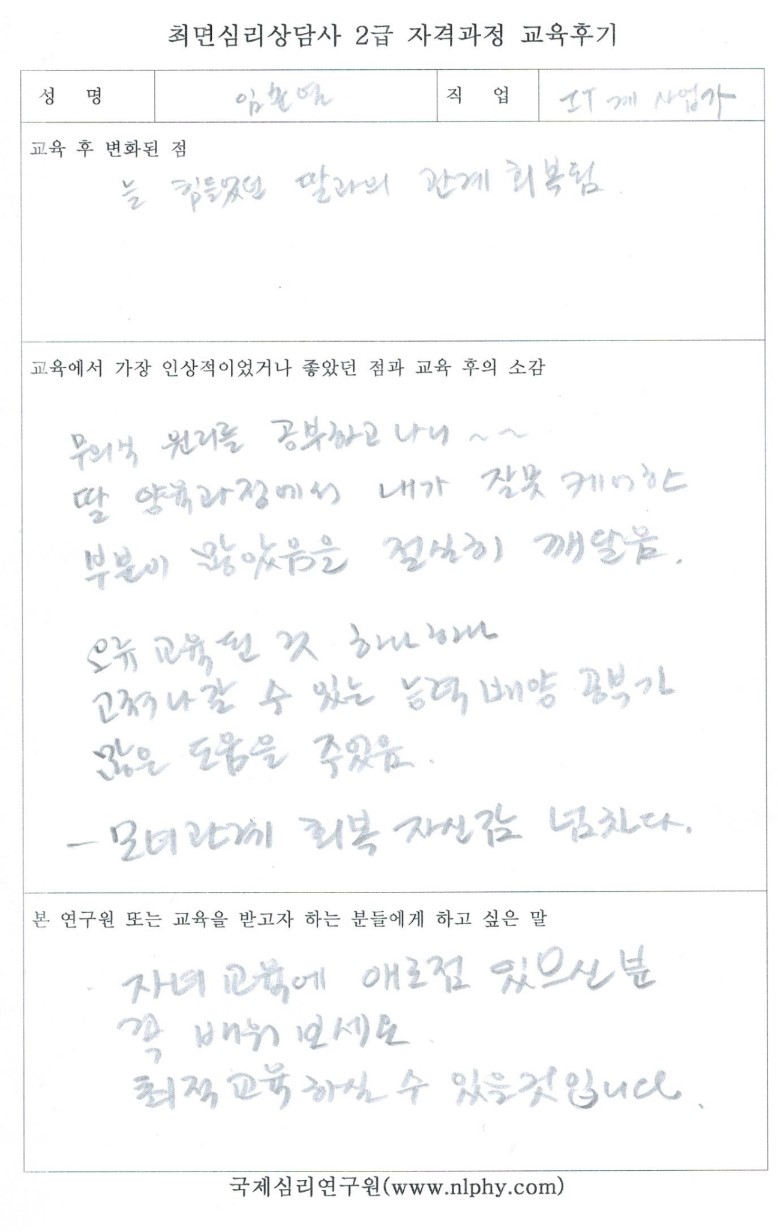 최면심리상담사 2급 자격과정 교육후기
성 명 직 업 IT 계 사업가
교육 후 변화된 점
늘 힘들었던 딸과의 관계 회복됨.
교육에서 가장 인상적이었거나 좋았던 점과 교육 후의 소감
무의식 원리를 공부하고 나니 ~~
딸 양육과정에서 내가 잘못 케어한
부분이 많았음을 절실히 깨달음.
오류 교육된 것 하나 하나
고쳐나갈 수 있는 능력배양 공부가
많은 도움을 주었음.
- 모녀관계 회복 자신감 넘친다.
본 연구원 또는 교육을 받고자 하는 분들에게 하고 싶은 말
자녀교육에 애로점 있으신 분
꼭 배워 보세요
최적교육하실 수 있을것입니다.
국제심리연구원(www.nlphy.com)